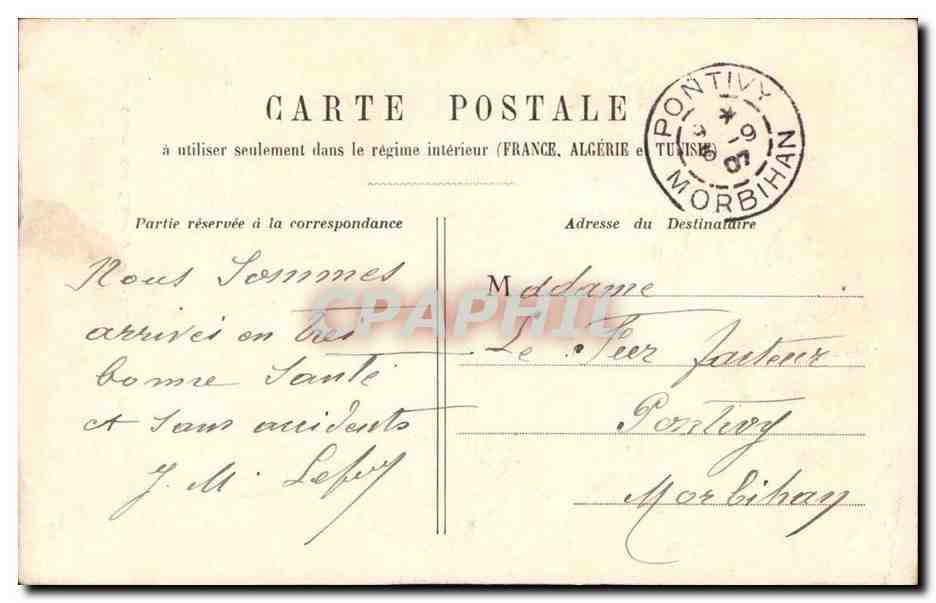 CARTE POSTALE
à utiliser seulement dans le régime intérieur (FRANCE, ALGÉRIE et TUNISIE)
PONTIVY
MORBIHAN
Partie réservée à la correspondance
Adresse du Destinataire
Nous Sommes
arrivés en très
bonne Santé
et Sans accidents
J. M.
Madame
Le facteur
Pontivy
Morbihan
CPAPHIL